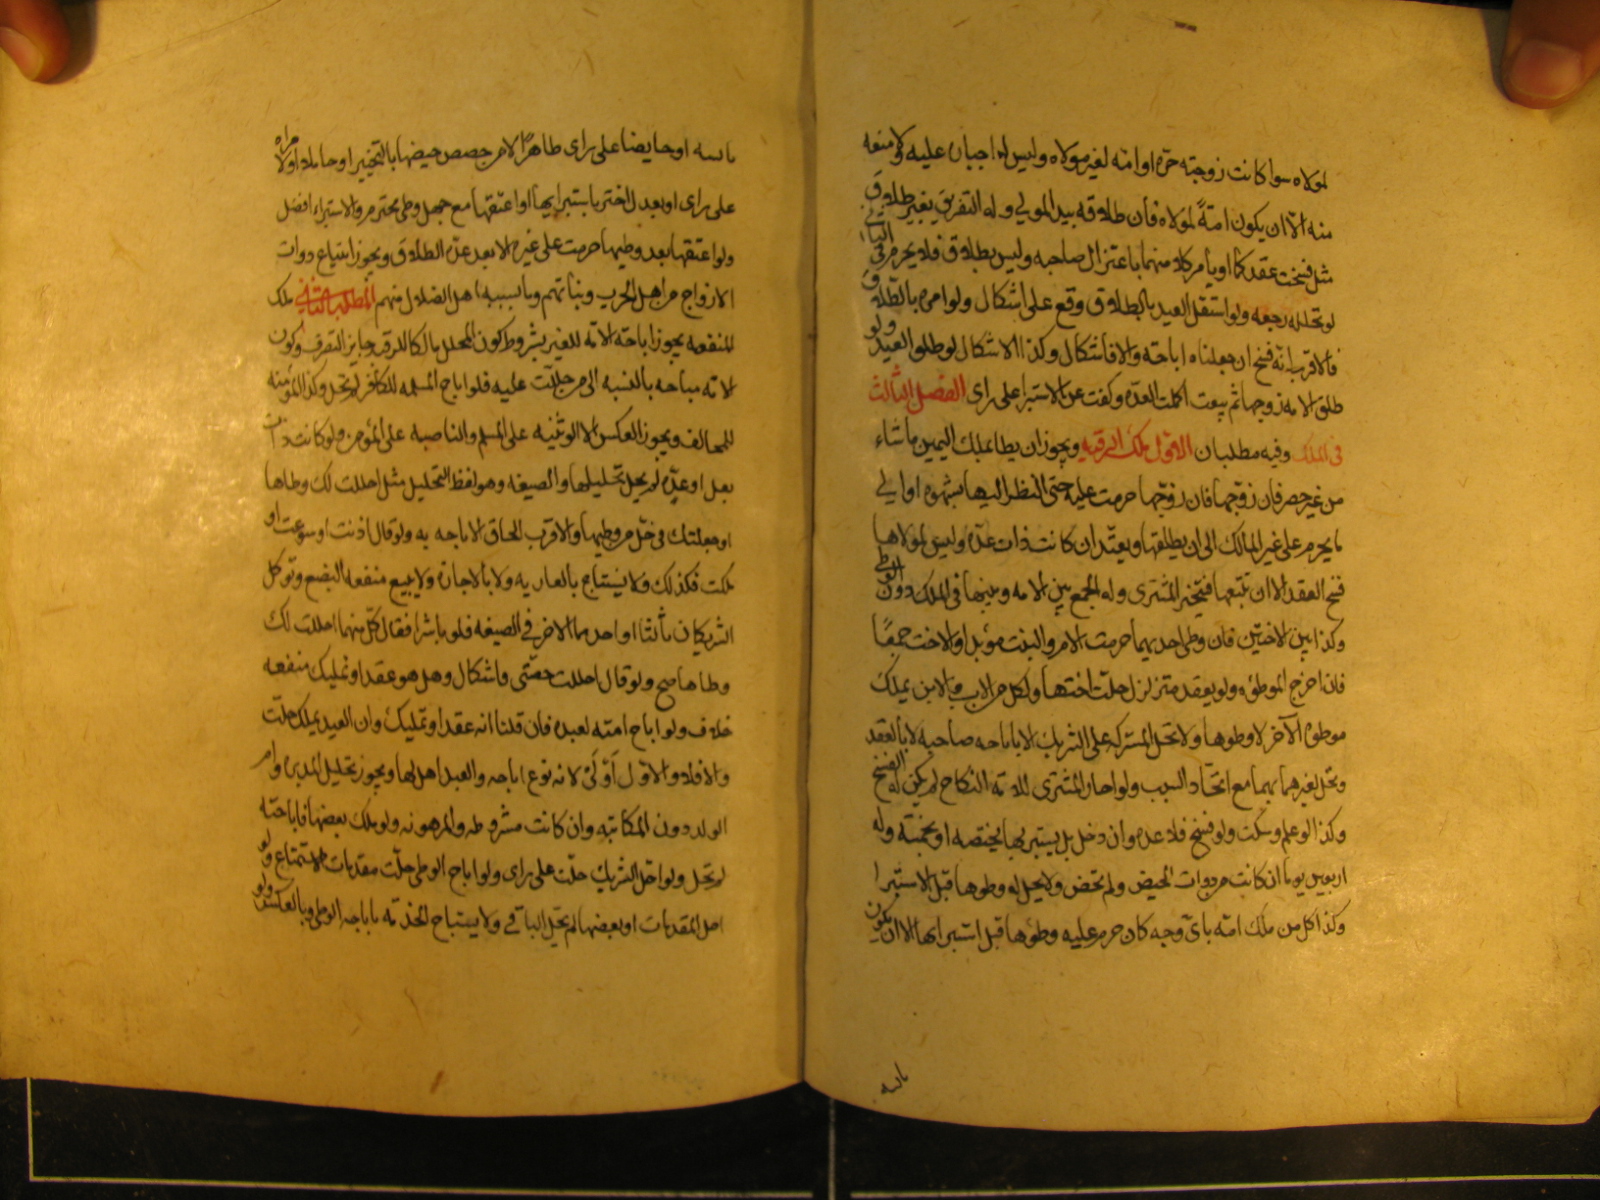 لمولاه سوا كانت زوجته حره او امه لغير مولاه وليس له اجبان عليه ولا منعه
منه الا ان يكون امةً لمولاه فان طلاقه بيد المولى وله التفريق بغير طلاق
مثل فسخت عقدكما او يامر كلا منهما باعتزال صاحبه وليس بطلاق فلا يحرم في الثاني
لو تخلله رجعه ولو استقل العبد بالطلاق وقع على اشكال ولو امره بالطلاق
فالاقرب انه فسخ ان جعلناه اباحته والا فاشكال وكذا الاشكال لو طلق العبد ولو
طلق الامه زوجها ثم بيعت اكملت العده وكفت عن الاستبرا على راى الفصل الثالث
فى الملك وفيه مطلبان الاول ملك الرقبه ويجوز ان يطا بملك اليمين ما شاء
من غير حصر فان زوجها حرمت عليه حتى النظر اليها بشهوه او الى
ما يحرم على غير المالك الى ان يطلقها ويعتد ان كانت ذات عدة وليس لمولاها
فسخ العقد الا ان تبيعها فيتخير المشترى وله الجمع بين الامه وبينها فى الملك دون الوطى
وكذا بين الاختين فان وطى احديهما حرمت الام والبنت مؤبدا والاخت جمعًا
فان اخرج الموطؤه ولو بعقد متزلزل حلت اختها ولكل من الاب والابن يملك
موطوه الآخر لا وطوها ولا تحل المشتركه على الشريك الا باباحه صاحبه لا بالعقد
وتحل لغيرهما بهما مع اتحاد السبب ولو اجاز المشترى للامه النكاح لم يكن له الفسخ
وكذا لو علم وسكت ولو فسخ فلا عده وان دخل بل يستبرئها بحيضه او بخمسة وله
اربعين يوما ان كانت من ذوات الحيض ولم تحض ولا يحل له وطوها قبل الاستبرا
وكذا كل من ملك امه باى وجه كان حرم عليه وطؤها قبل استبرايها الا ان يكون
يائسه
يائسه او حايضا على راى طاهرًا لامراه خصص حيضها بالتخيير او حاملا او لا
على راى او بعدل اخبر باستبرايها او اعتقها مع جهل وطى محترم والاستبراء افضل
ولو اعتقها بعد وطيها حرمت على غيره الا بعد عدة الطلاق ويجوز ابتياع ذوات
الازواج من اهل الحرب وبناتهم وما يسبيه اهل الضلال منهم المطلب الثانى ملك
المنفعه يجوز اباحة الامه للغير بشروط كون المحلل مالكا للرقبه جايز التصرف وكون
الامه مباحه بالنسبه الى من حللت عليه فلو اباح المسلمه للكافر لم تحل وكذا المؤمنه
للمخالف ويجوز العكس الا الوثنيه على المسلم والناصبه على المؤمن ولو كانت ذات
بعل او عدة لم يحل تحليلها والصيغه وهو لفظ التحليل مثل احللت لك وطاها
او جعلتك فى حل من وطيها والاقرب الحاق الاباحه به ولو قال اذنت او سوغت او
ملكت فكذلك ولا يستباح بالعاريه ولا بالاجازة ولا ببيع منفعه البضع ولو وكل
الشريكان ثالثا او احدهما الاخر فى الصيغه فلو باشرا فقال كل منهما احللت لك
وطاها صح ولو قال احللت حصتى فاشكال وهل هو عقد او تمليك منفعه
خلاف ولو اباح امته لعبده فان قلنا انه عقد او تمليك وان العبد يملك حلت
والا فلا والاول اَولى لانه نوع اباحه والعبد اهل لها ويجوز تحليل المدبره وام
الولد دون المكاتبه وان كانت مشروطه والمرهونه ولو ملك بعضها فاباحته
لم تحل ولو احل الشريك حلت على راى ولو اباح الوطى حلت مقدمات الاستمتاع ولو
احل المقدمات او بعضها لم يحل الباقى ولا يستباح الخدمه باباحه الوطى وبالعكس ولو